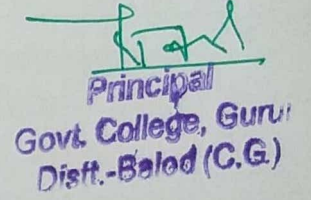 Principal
Govt. College, Gurur
Distt.-Balod (C.G.)